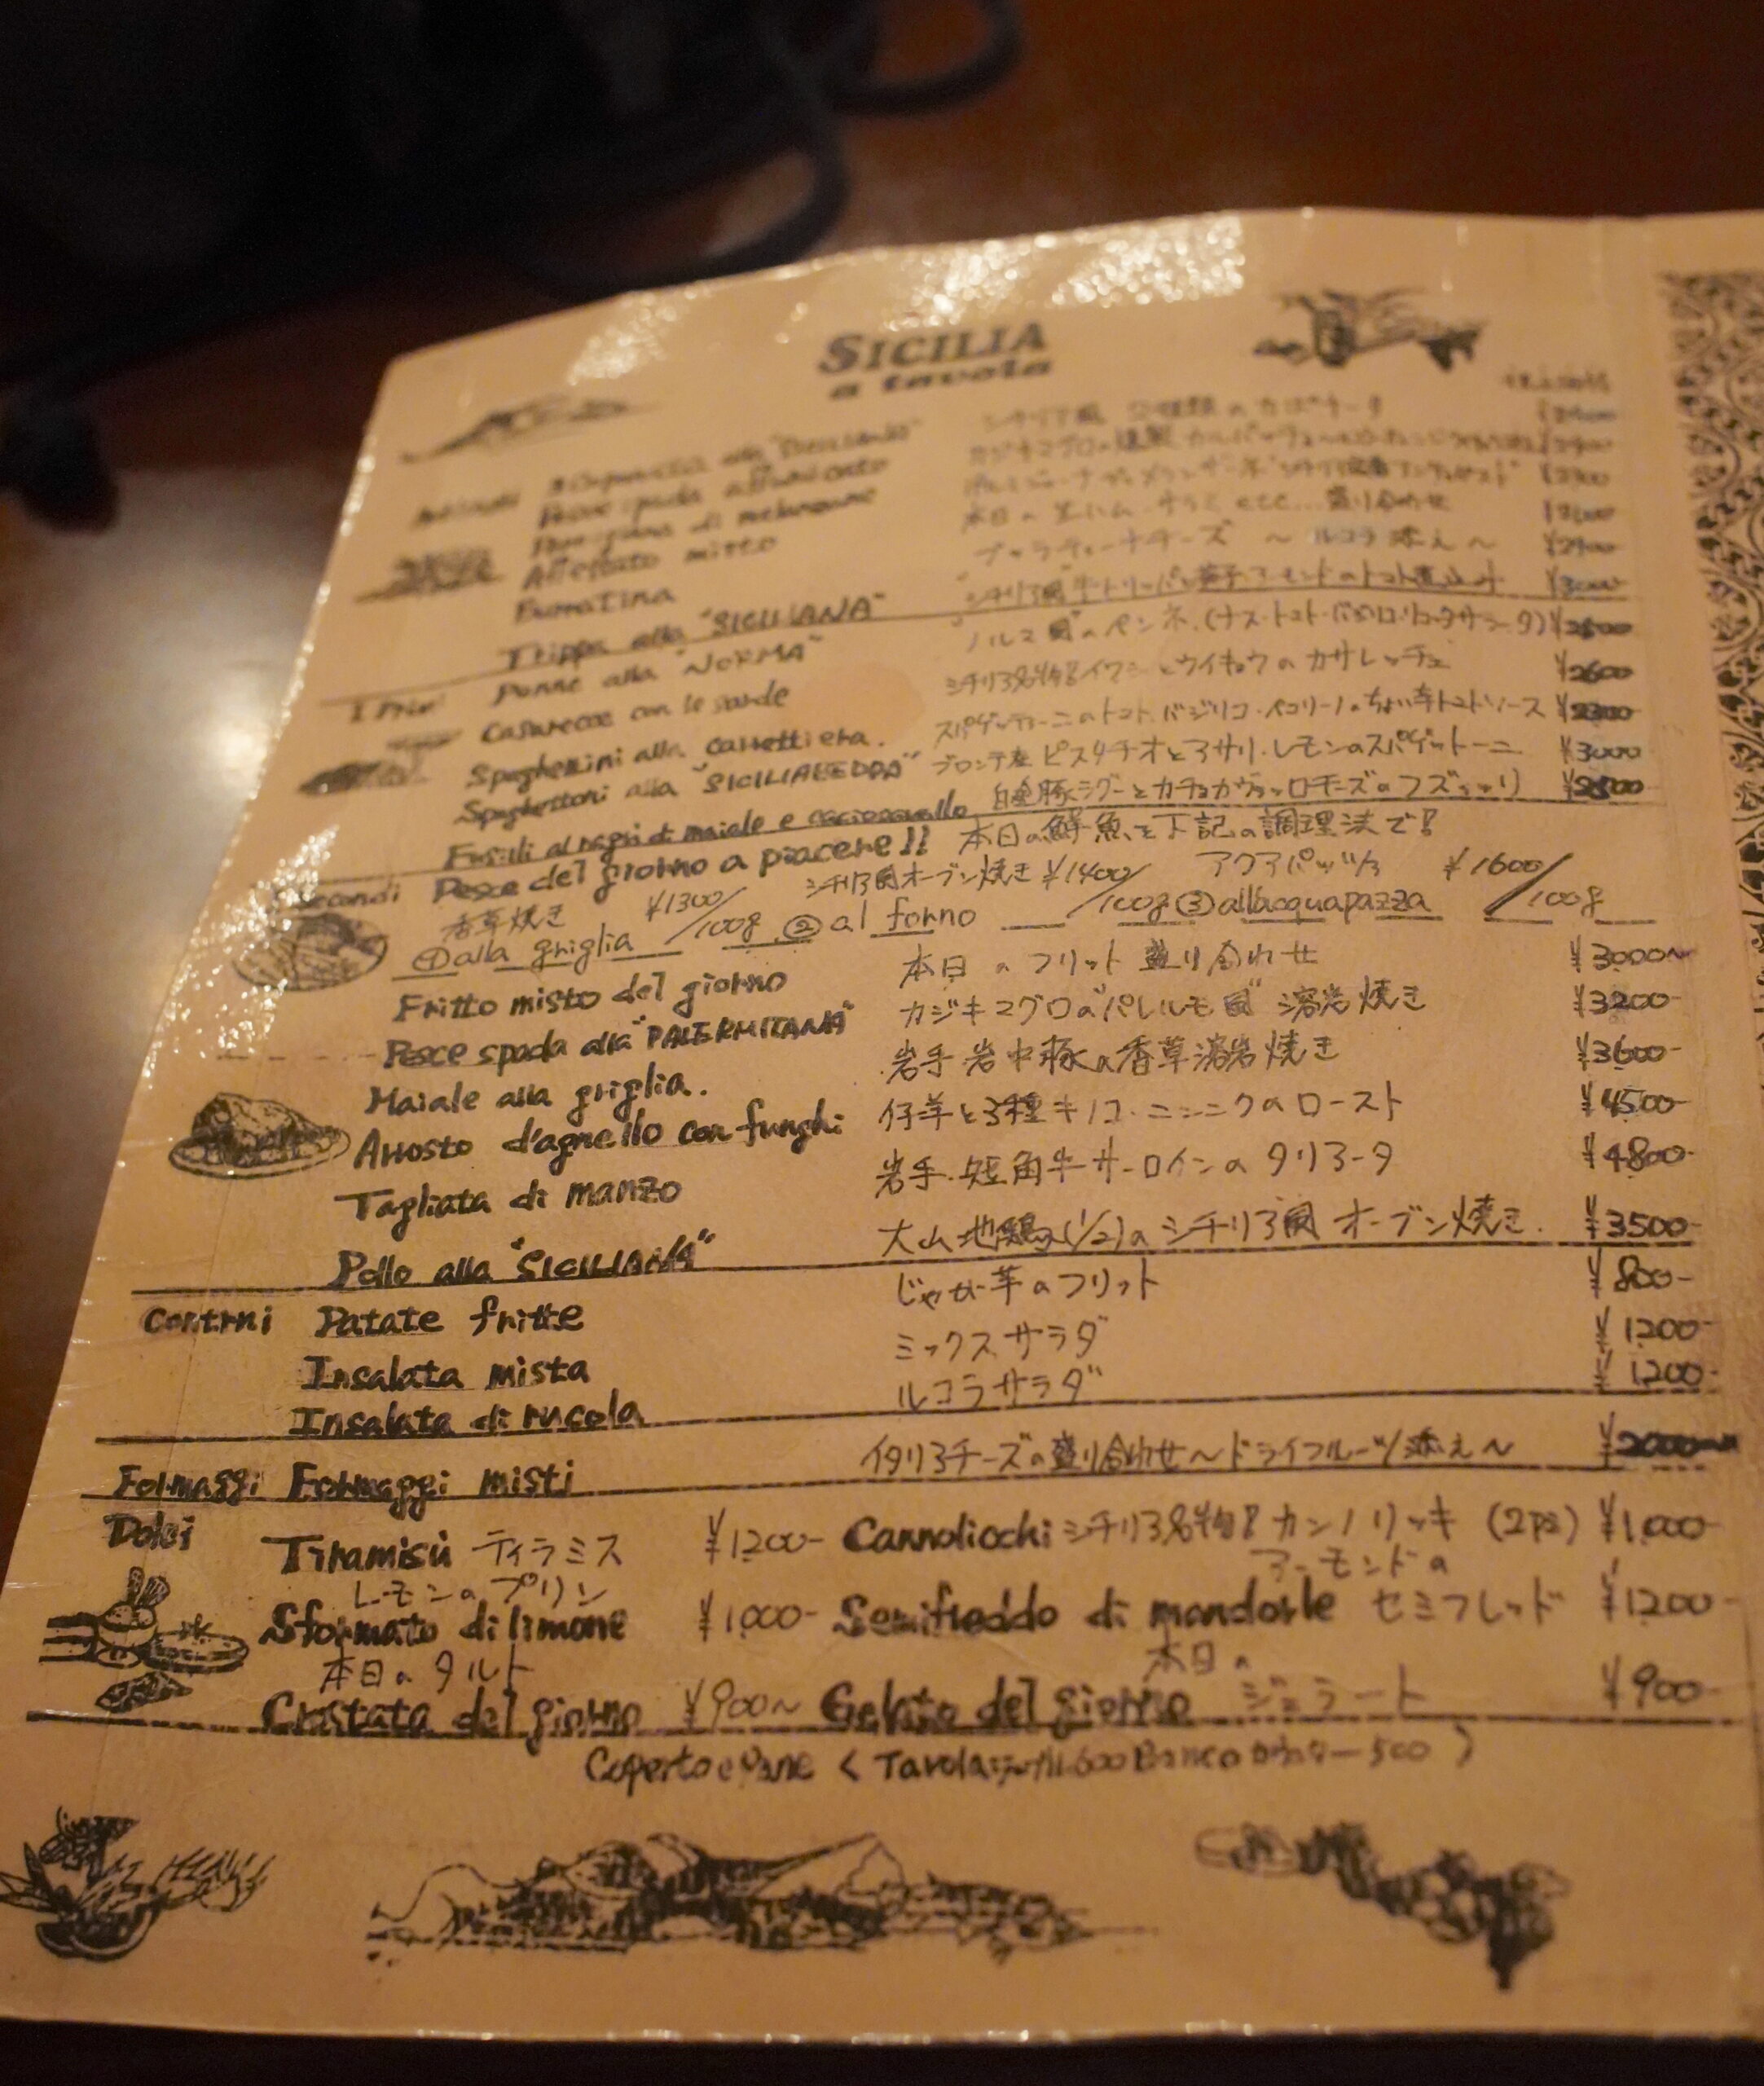 SICILIA
a tavola
Pesce spada affumicato
Affettato misto 本日の生ハム・サラミ etc...盛り合わせ
Burratina ブッラティーナチーズ ～ルコラ添え～ ¥2900
Trippa alla "SICILIANA" ¥3000
I Primi Penne alla "NORMA" "ノルマ風"のペンネ
Casarecce con le sarde シチリア名物!イワシとウイキョウのカサレッチェ ¥2600
Spaghettini alla carrettiera. スパゲッティーニのトマト・バジリコ・ペコリーノのちょい辛トマトソース ¥2300
Spaghettoni alla "SICILIABEDDA" ブロンテ産ピスタチオとアサリ・レモンのスパゲットーニ ¥3000
Fusilli al ragù di maiale e caciocavallo 白金豚ラグーとカチョカヴァッロチーズのフズィッリ ¥2800
Secondi Pesce del giorno a piacere!! 本日の鮮魚を下記の調理法で!
香草焼き ¥1300/100g シチリア風オーブン焼き ¥1400/100g アクアパッツァ ¥1600/100g
①alla griglia ②al forno ③all'acquapazza
Fritto misto del giorno 本日のフリット盛り合わせ ¥3000~
Pesce spada alla "PALERMITANA" カジキマグロの"パレルモ風"溶岩焼き ¥3200-
Maiale alla griglia. 岩手岩中豚の香草溶岩焼き ¥3600-
Arrosto d'agnello con funghi 仔羊と3種キノコ・ニンニクのロースト ¥4500-
Tagliata di manzo 岩手・短角牛サーロインのタリアータ ¥4800-
Pollo alla "SICILIANA" 大山地鶏(1/2)のシチリア風オーブン焼き. ¥3500-
Contorni Patate fritte じゃが芋のフリット ¥800-
Insalata mista ミックスサラダ ¥1200-
Insalata di rucola ルコラサラダ ¥1200-
Formaggi Formaggi misti イタリアチーズの盛り合わせ～ドライフルーツ添え～ ¥2000
Dolci Tiramisù ティラミス ¥1200- Cannolicchi シチリア名物!カンノリッキ (2ps) ¥1,000-
レモンのプリン アーモンドの
Sformato di limone ¥1,000- Semifreddo di mandorle セミフレッド ¥1200-
本日のタルト 本日の
Crostata del giorno ¥900~ Gelato del giorno ジェラート ¥900-
Coperto e Pane < Tavola テーブル 600 Banco カウンター 500 >